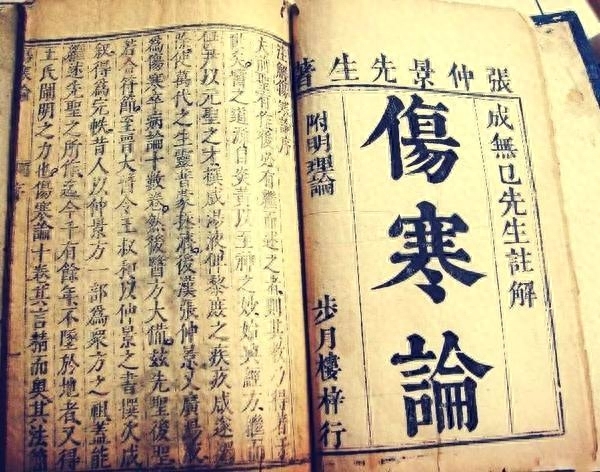 張仲景先生著
成無已先生註解
傷寒論
附明理論
步月樓梓行
註解傷寒論序
夫前聖有作後必有繼而述之者則其教乃得著于
世矣醫之道源自炎黃以至神之妙始興經方繼而
伊尹以元聖之才撰成湯液俾黎庶之疾疚咸遂
除使萬代之生靈普蒙拯濟後漢張仲景又廣湯液
為傷寒卒病論十數卷然後醫方大備茲先聖後聖
若合符節至晉太醫令王叔和以仲景之書撰次成
敘得為完帙昔人以仲景方一部為眾方之祖蓋能
繼述先聖之所作迄今千有餘年不墜於地者又得
王氏闡明之力也傷寒論十卷其言精而奧其法簡
傷寒論 序